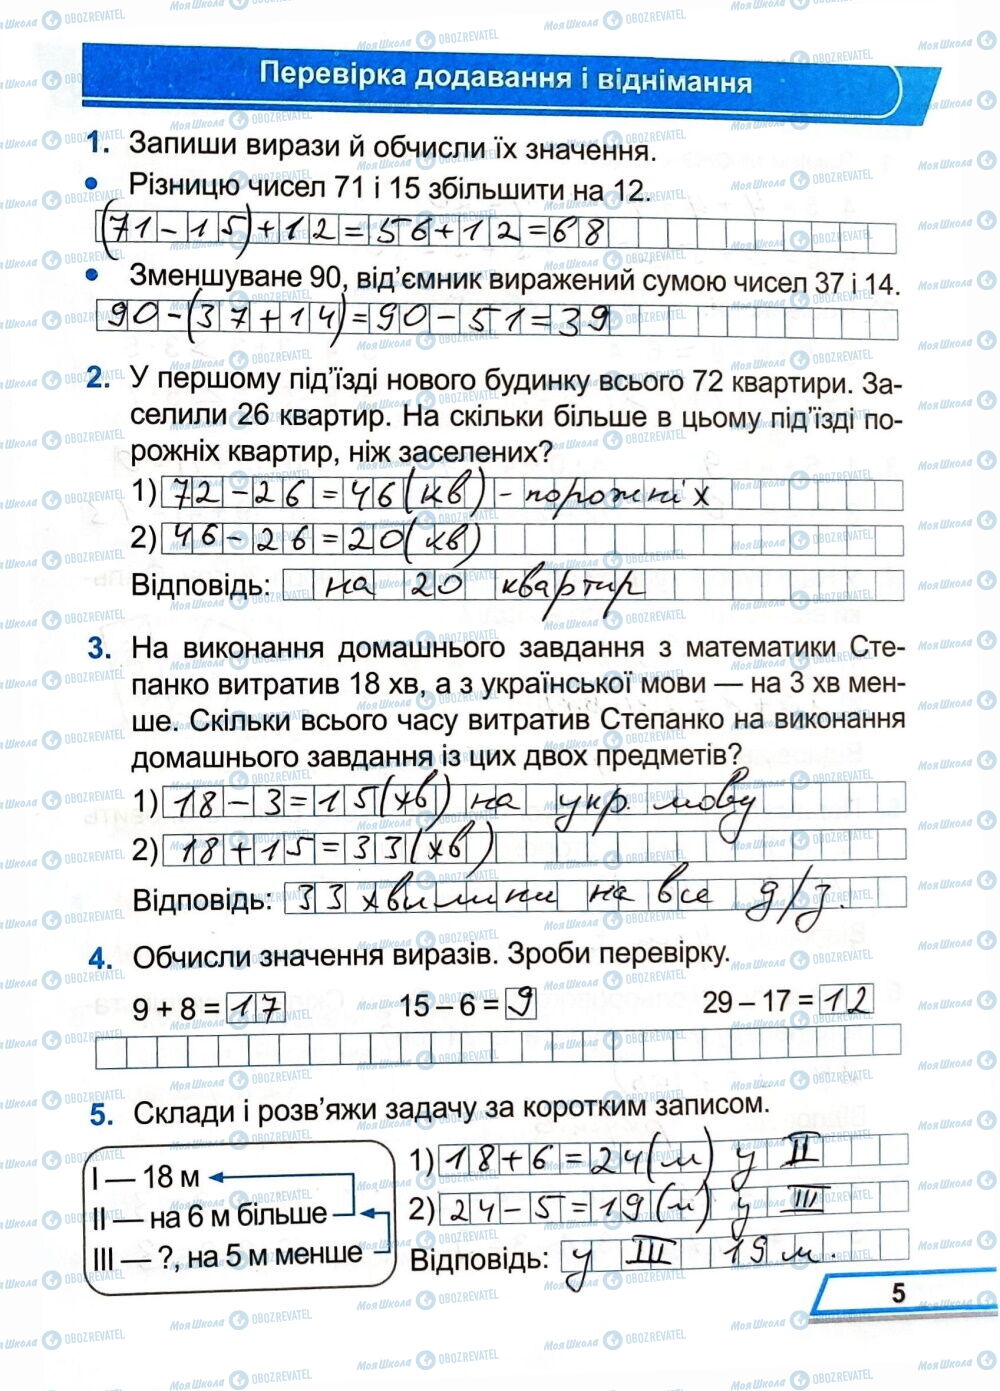 Перевірка додавання і віднімання
1. Запиши вирази й обчисли їх значення.
• Різницю чисел 71 і 15 збільшити на 12.
(71-15)+12=56+12=68
• Зменшуване 90, від'ємник виражений сумою чисел 37 і 14.
90-(37+14)=90-51=39
2. У першому під'їзді нового будинку всього 72 квартири. За-
селили 26 квартир. На скільки більше в цьому під'їзді по-
рожніх квартир, ніж заселених?
1) 72-26=46(кв)-порожніх
2) 46-26=20(кв)
Відповідь: на 20 квартир
3. На виконання домашнього завдання з математики Сте-
панко витратив 18 хв, а з української мови — на 3 хв мен-
ше. Скільки всього часу витратив Степанко на виконання
домашнього завдання із цих двох предметів?
1) 18-3=15(хв) на укр. мову
2) 18+15=33(хв)
Відповідь: 33 хвилини на все д/з.
4. Обчисли значення виразів. Зроби перевірку.
9 + 8 = 17 15 – 6 = 9 29 – 17 = 12
5. Склади і розв'яжи задачу за коротким записом.
I — 18 м
II — на 6 м більше
III — ?, на 5 м менше
1) 18+6=24(м) у II
2) 24-5=19(м) у III
Відповідь: у III 19 м.
5
МояШкола OBOZREVATEL